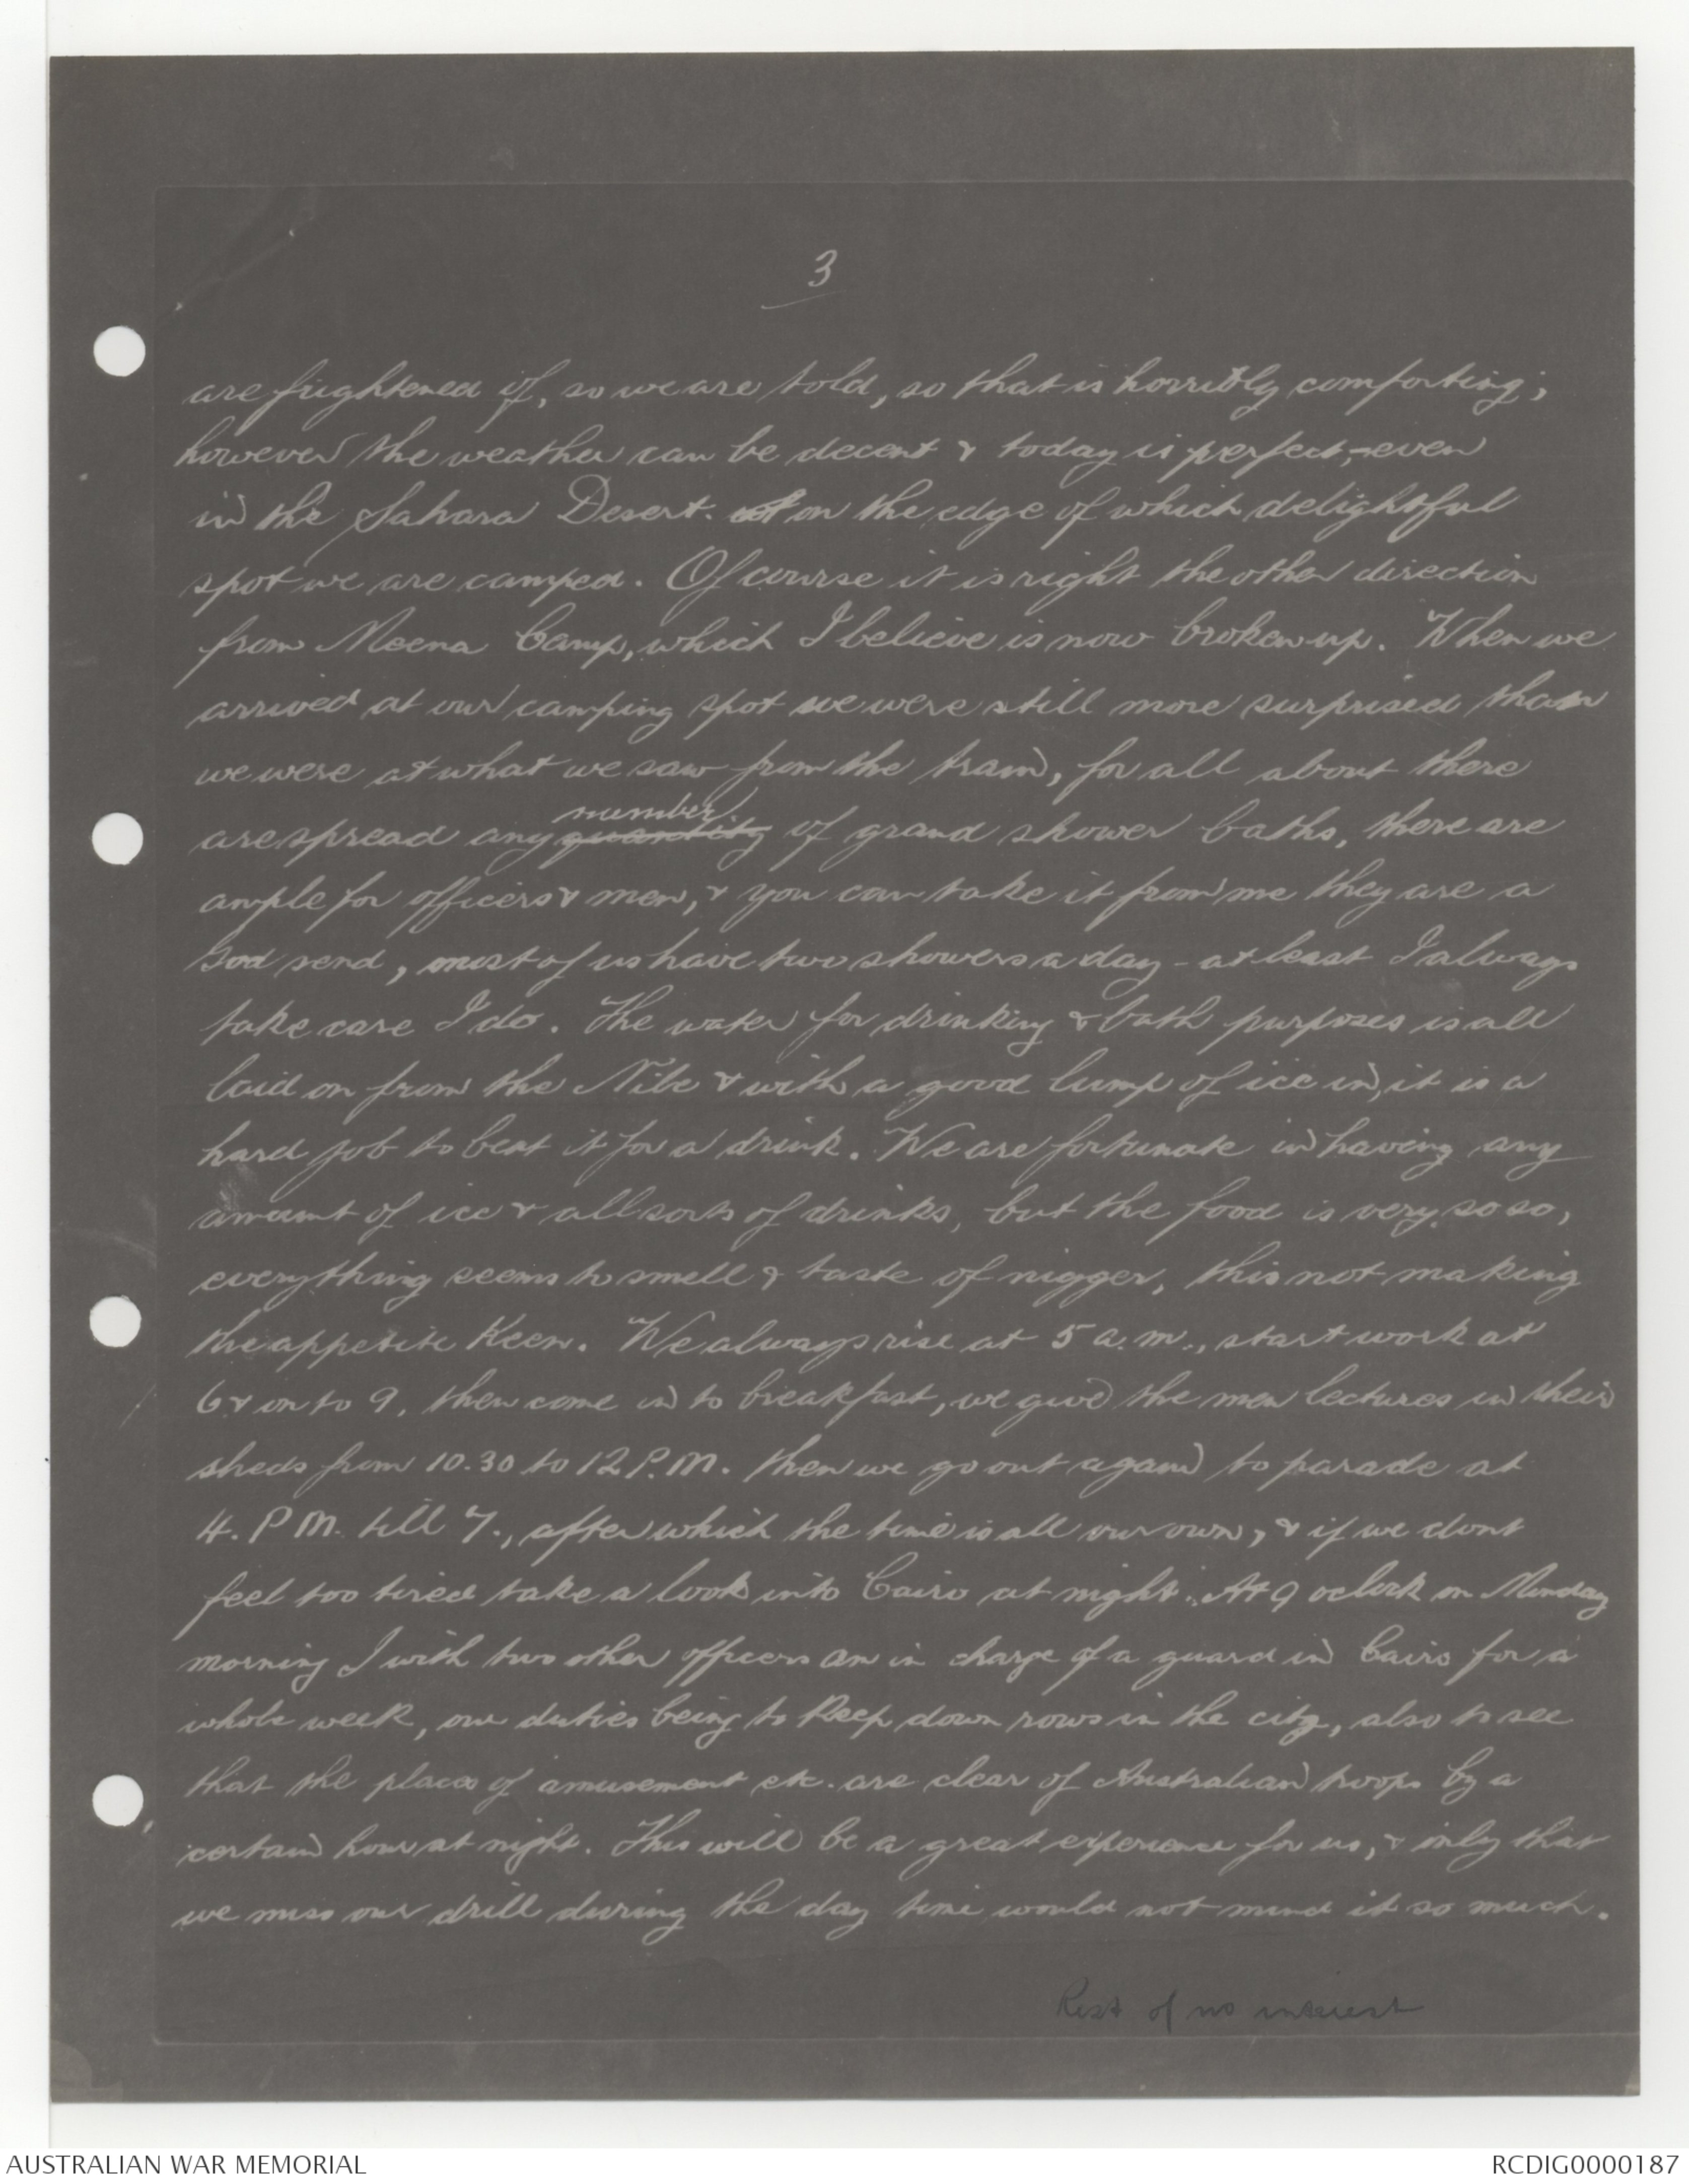 3
are frightened of, so we are told, so that is horribly comforting;
however the weather can be decent & today is perfect, - even
in the Sahara Desert. on the edge of which delightful
spot we are camped. Of course it is right the other direction
from Meena Camp, which I believe is now broken up. When we
arrived at our camping spot we were still more surprised than
we were at what we saw from the train, for all about there
number
are spread any quantity of grand shower baths, there are
ample for officers & men, & you can take it from me they are a
God send, most of us have two showers a day - at least I always
take care I do. The water for drinking & bath purposes is all
laid on from the Nile & with a good lump of ice in, it is a
hard job to beat it for a drink. We are fortunate in having any
amount of ice & all sorts of drinks, but the food is very so so,
everything seems to smell & taste of nigger, this not making
the appetite keen. We always rise at 5 a.m., start work at
6 & on to 9, then come in to breakfast, we give the men lectures in their
sheds from 10.30 to 12 P.M. then we go out again to parade at
4. P M. till 7., after which the time is all our own, & if we dont
feel too tired take a look into Cairo at night. At 9 oclock on Monday
morning I with two other officers am in charge of a guard in Cairo for a
whole week, our duties being to keep down rows in the city, also to see
that the places of amusement etc. are clear of Australian troops by a
certain hour at night. This will be a great experience for us, & only that
we miss our drill during the day time would not mind it so much.
Rest of no interest
AUSTRALIAN WAR MEMORIAL
RCDIG0000187